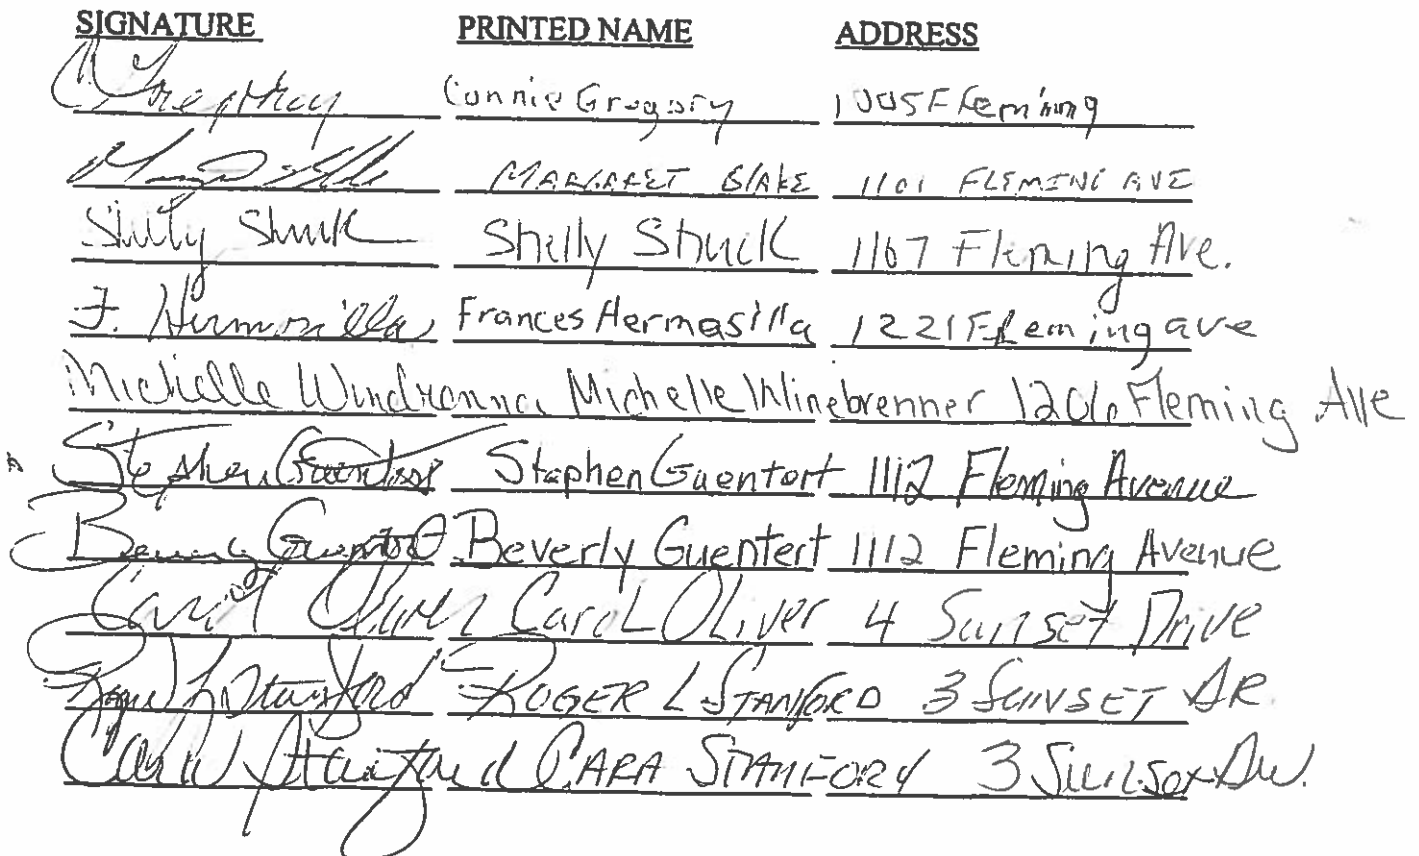 SIGNATURE PRINTED NAME ADDRESS
Connie Gregory 1005 Fleming
MARGARET BLAKE 1101 FLEMING AVE
Shelly Shuck Shelly Shuck 1167 Fleming Ave.
F. Hermosilla Frances Hermasilla 1221 Fleming ave
Michelle Michelle Winebrenner 1206 Fleming Ave
Stephen Guentert Stephen Guentert 1112 Fleming Avenue
Beverly Guentert Beverly Guentert 1112 Fleming Avenue
Carol Oliver Carol OLiver 4 Sunset Drive
Roger L Stanford ROGER L STANFORD 3 SUNSET DR.
Stanford CARA STANFORD 3 Sunset